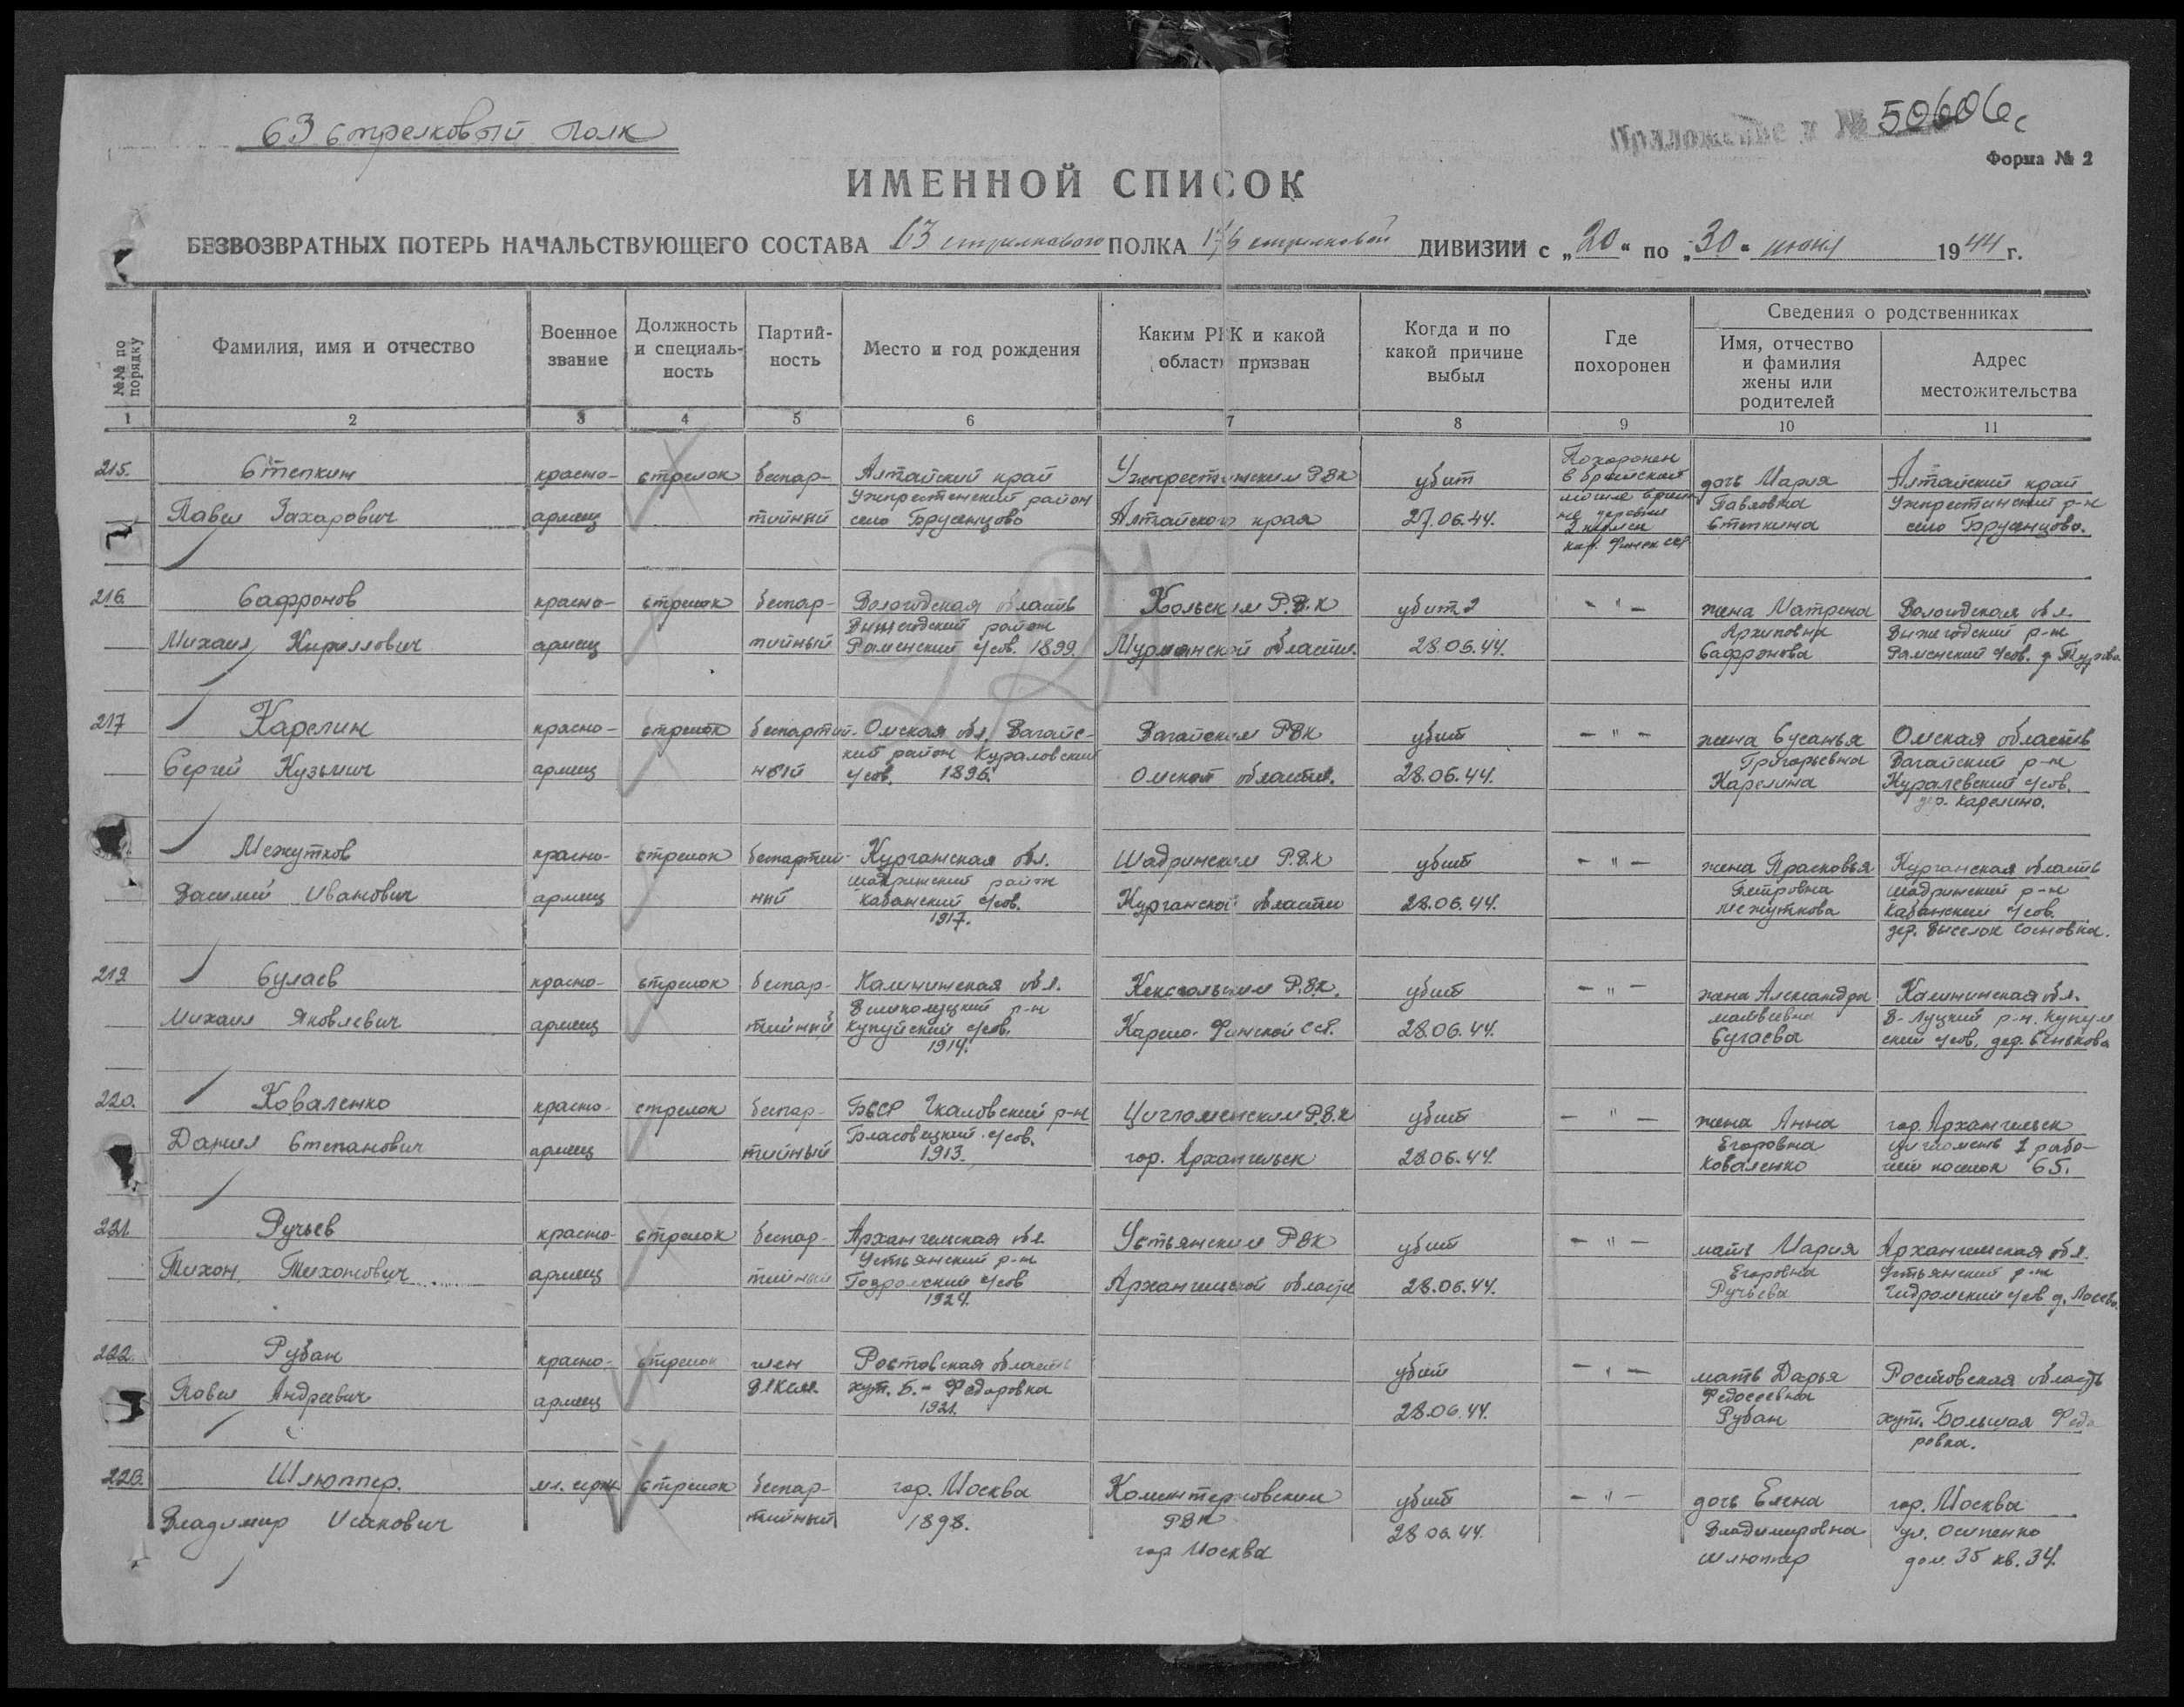 63 стрелковый полк
Приложение к № 50606с
Форма № 2
ИМЕННОЙ СПИСОК
БЕЗВОЗВРАТНЫХ ПОТЕРЬ НАЧАЛЬСТВУЮЩЕГО СОСТАВА 63 стрелкового ПОЛКА 176 стрелковой ДИВИЗИИ с „20“ по „30“ июня 1944 г.
№№ по порядку
Фамилия, имя и отчество
Военное звание
Должность и специаль-ность
Партий-ность
Место и год рождения
Каким РВК и какой области призван
Когда и по какой причине выбыл
Где похоронен
Сведения о родственниках
Имя, отчество и фамилия жены или родителей
Адрес местожительства
1 2 3 4 5 6 7 8 9 10 11
215. Степкин красно- стрелок беспар- Алтайский край РВК убит Похоронен в братской дочь Мария Алтайский край
район Павловна р-н
Павел Захарович армеец тийный село Брусенцово Алтайского края 27.06.44. Степкина село Брусенцово.
216. Сафронов красно- стрелок беспар- Вологодская область Кольским Р.В.К убит - " - жена Матрена Вологодская обл.
район Архиповна р-н
Михаил Кириллович армеец тийный Раменский с/сов. 1899. Мурманской области. 28.06.44. Сафронова Раменский с/сов. д.
217 Карелин красно- стрелок беспартий- Омская обл. Вагайс- Вагайским РВК убит - " - жена Сусанья Омская область
кий район Григорьевна Вагайский р-н
Сергей Кузьмич армеец ный с/сов. 1896. Омской области. 28.06.44. Карелина с/сов.
дер. Карелино.
Межутков красно- стрелок беспартий- Курганская обл. Шадринским Р.В.К убит - " - жена Прасковья Курганская область
Шадринский район Петровна Шадринский р-н
Василий Иванович армеец ный Кабанский с/сов. Курганской области 28.06.44. Межуткова Кабанский с/сов.
1917. дер. Выселок Сосновка.
219 красно- стрелок беспар- Калининская обл. Кексгольмским Р.В.К. убит - " - жена Александра Калининская обл.
Великолуцкий р-н Матвеевна В-Луцкий р-н.
Михаил Яковлевич армеец тийный Купуйский с/сов. Карело-Финской ССР. 28.06.44. ский с/сов, дер.
1914.
220. Коваленко красно- стрелок беспар- БССР Чкаловский р-н Цигломенским Р.В.К убит - " - жена Анна гор. Архангельск
с/сов. Егоровна Цигломень 1 рабо-
Данил Степанович армеец тийный 1913. гор. Архангельск 28.06.44. Коваленко чий поселок 65.
221. Ручьев красно- стрелок беспар- Архангельская обл. Устьянским РВК убит - " - мать Мария Архангельская обл.
Устьянский р-н Егоровна Устьянский р-н
Тихон Тихонович армеец тийный с/сов Архангельской области 28.06.44. Ручьева с/сов д.
1924.
222. Рубан красно- стрелок член Ростовская область убит - " - мать Дарья Ростовская область
Павел Андреевич армеец ВЛКСМ. хут. Б.-Федоровка Федосеевна
1921. 28.06.44. Рубан хут. Большая Федо
ровка.
223. Шлюппер. мл. серж стрелок беспар- гор. Москва Коминтерновским убит - " - дочь Елена гор. Москва
Владимир Исакович тийный 1898. РВК 28.06.44. Владимировна ул. Осипенко
гор Москва Шлюппер дом. 35 кв. 34.